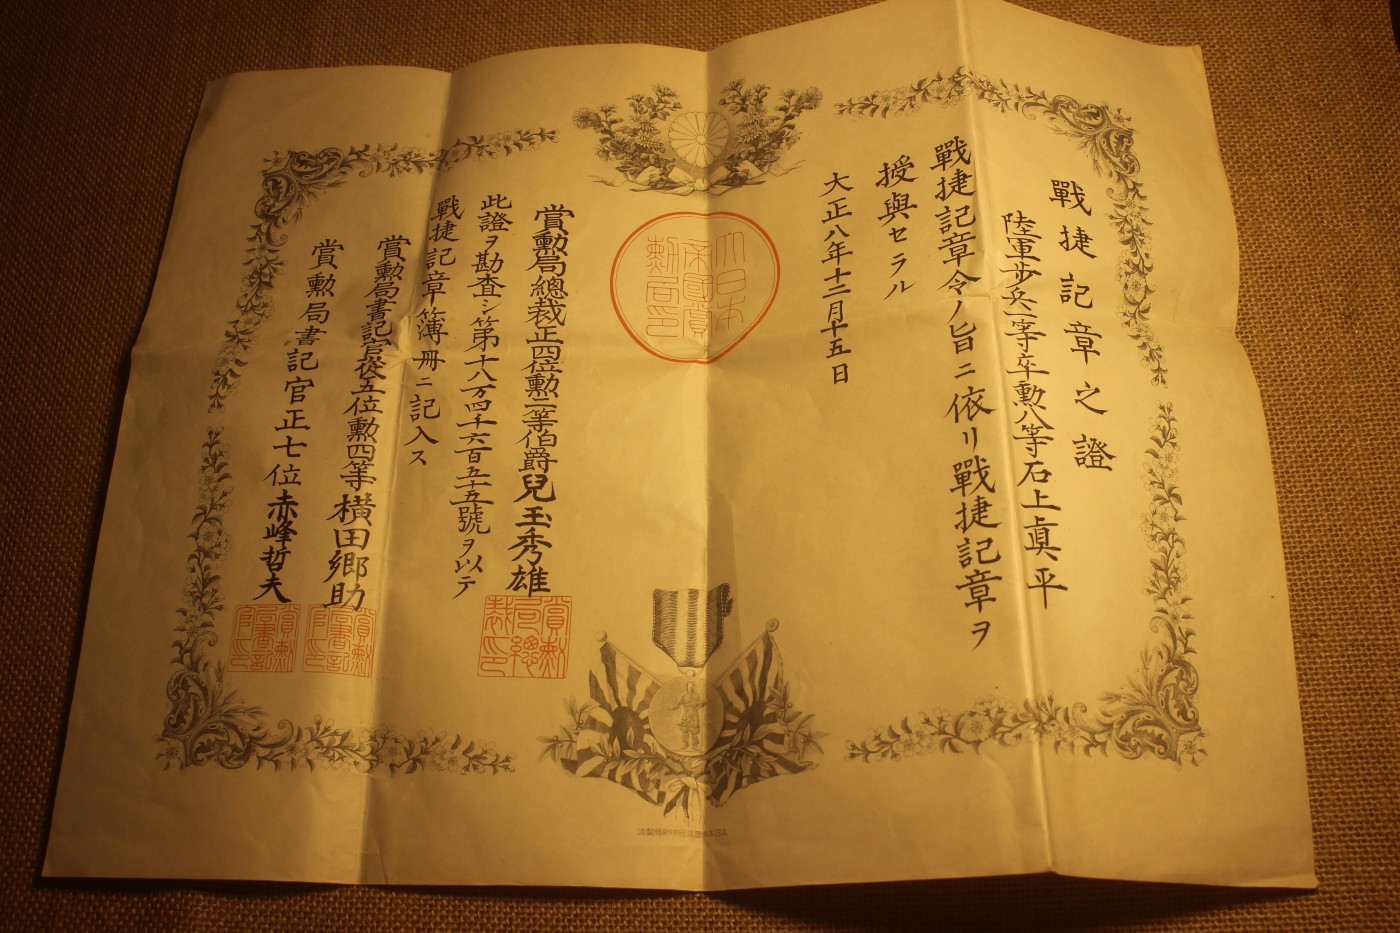 戰捷記章之證
陸軍歩兵一等卒勲八等石上眞平
戰捷記章令ノ旨ニ依リ戰捷記章ヲ
授與セラル
大正八年十二月十五日
大日本帝國賞勲局印
賞勲局總裁正四位勲二等伯爵兒玉秀雄
賞勲局總裁印
此證ヲ勘査シ第十八万四千六百五十五號ヲ以テ
戰捷記章簿冊ニ記入ス
賞勲局書記官從五位勲四等横田郷助
賞勲局書記官正七位赤峰哲夫